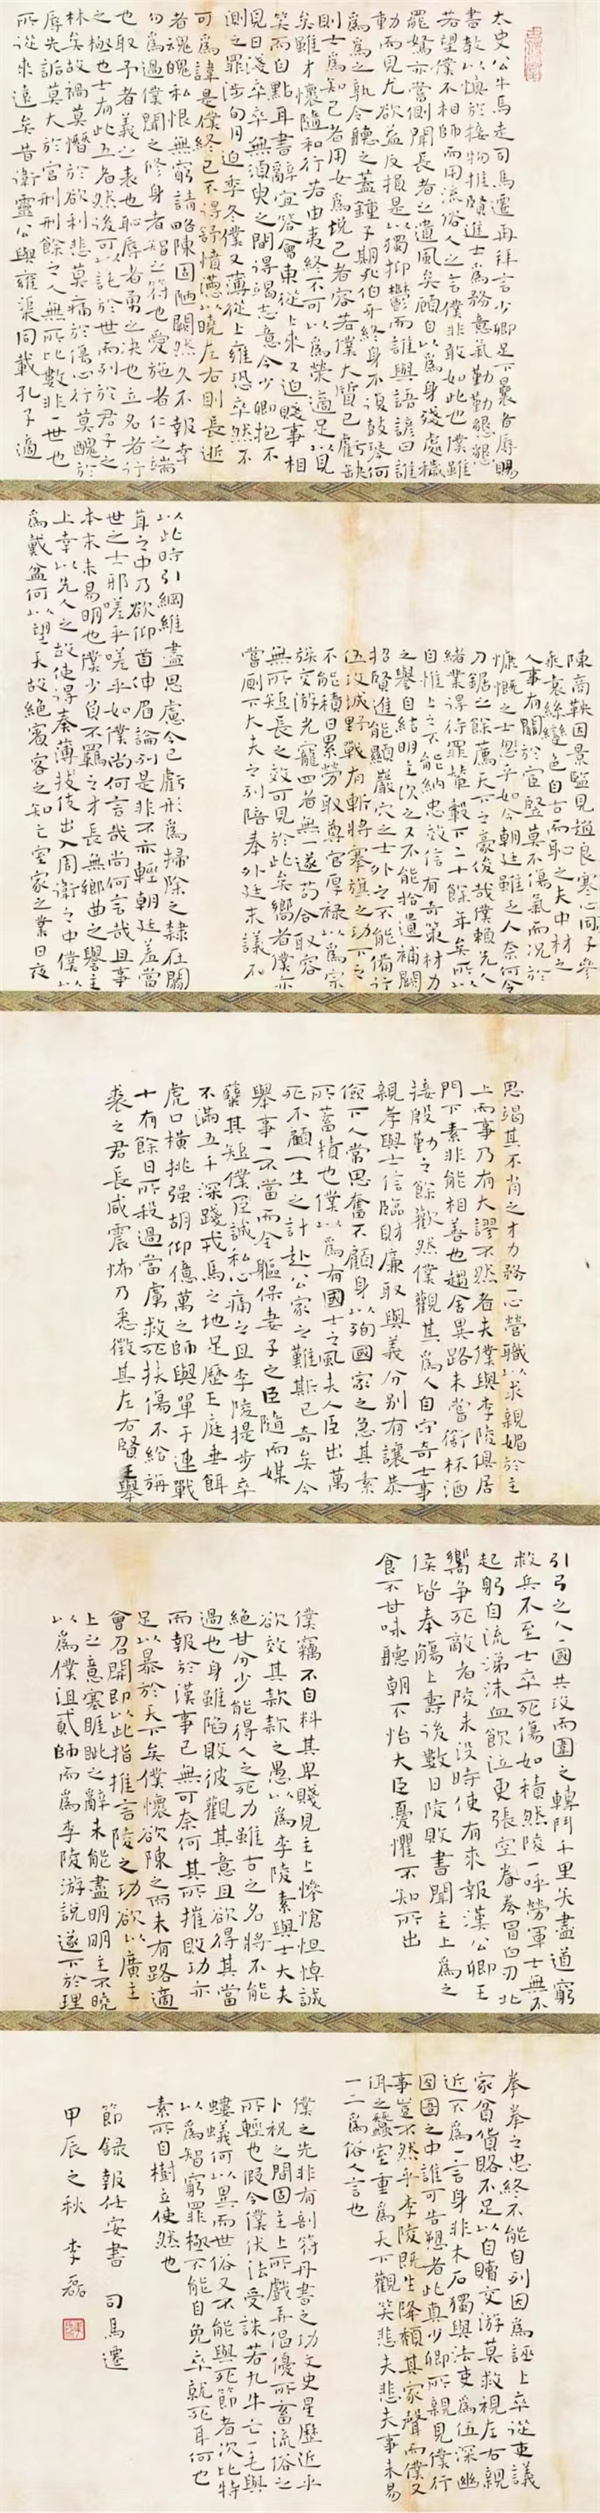 太史公牛馬走司馬遷再拜言少卿足下曩者辱賜
書教以慎於接物推賢進士爲務意氣勤勤懇懇
若望僕不相師而用流俗人之言僕非敢如此也僕雖
罷駑亦嘗側聞長者之遺風矣顧自以爲身殘處穢
動而見尤欲益反損是以獨抑鬱而誰與語諺曰誰
爲爲之孰令聽之蓋鍾子期死伯牙終身不復鼓琴何
則士爲知己者用女爲悅己者容若僕大質已虧缺
矣雖才懷隨和行若由夷終不可以爲榮適足以見
笑而自點耳書辭宜答會東從上來又迫賤事相
見日淺卒卒無須臾之間得竭志意今少卿抱不
測之罪涉旬月迫季冬僕又薄從上雍恐卒然不
可爲諱是僕終已不得舒憤懣以曉左右則長逝
者魂魄私恨無窮請略陳固陋闕然久不報幸
勿爲過僕聞之修身者智之符也愛施者仁之端
也取予者義之表也恥辱者勇之決也立名者行
之極也士有此五者然後可以託於世而列於君子之
林矣故禍莫憯於欲利悲莫痛於傷心行莫醜於
辱先詬莫大於宮刑刑餘之人無所比數非一世也
所從來遠矣昔衛靈公與雍渠同載孔子適
陳商鞅因景監見趙良寒心同子參
乘袁絲變色自古而恥之夫中材之
人事有關於宦豎莫不傷氣而況於
慷慨之士乎如今朝廷雖乏人奈何令
刀鋸之餘薦天下之豪俊哉僕賴先人
緒業得待罪輦轂下二十餘年矣所以
自惟上之不能納忠效信有奇策材力
之譽自結明主次之又不能拾遺補闕
招賢進能顯巖穴之士外之不能備行
伍攻城野戰有斬將搴旗之功下之
不能積日累勞取尊官厚祿以爲宗
族交游光寵四者無一遂苟合取容
無所短長之效可見於此矣嚮者僕亦
嘗廁下大夫之列陪奉外廷末議不
以此時引綱維盡思慮今已虧形爲掃除之隸在闒
茸之中乃欲仰首伸眉論列是非不亦輕朝廷羞當
世之士邪嗟乎嗟乎如僕尚何言哉尚何言哉且事
本末未易明也僕少負不羈之才長無鄉曲之譽主
上幸以先人之故使得奏薄技出入周衛之中僕以
爲戴盆何以望天故絕賓客之知亡室家之業日夜
思竭其不肖之才力務一心營職以求親媚於主
上而事乃有大謬不然者夫僕與李陵俱居
門下素非能相善也趨舍異路未嘗銜杯酒
接殷勤之餘歡然僕觀其爲人自守奇士事
親孝與士信臨財廉取與義分別有讓恭
儉下人常思奮不顧身以殉國家之急其素
所蓄積也僕以爲有國士之風夫人臣出萬
死不顧一生之計赴公家之難斯已奇矣今
舉事一不當而全軀保妻子之臣隨而媒
糵其短僕誠私心痛之且李陵提步卒
不滿五千深踐戎馬之地足歷王庭垂餌
虎口橫挑强胡仰億萬之師與單于連戰
十有餘日所殺過當虜救死扶傷不給旃
裘之君長咸震怖乃悉徵其左右賢王舉
引弓之人一國共攻而圍之轉鬥千里矢盡道窮
救兵不至士卒死傷如積然陵一呼勞軍士無不
起躬自流涕沫血飲泣更張空弮冒白刃北
嚮爭死敵者陵未没時使有來報漢公卿王
侯皆奉觴上壽後數日陵敗書聞主上爲之
食不甘味聽朝不怡大臣憂懼不知所出
僕竊不自料其卑賤見主上慘愴怛悼誠
欲效其款款之愚以爲李陵素與士大夫
絕甘分少能得人之死力雖古之名將不能
過也身雖陷敗彼觀其意且欲得其當
而報於漢事已無可奈何其所摧敗功亦
足以暴於天下矣僕懷欲陳之而未有路適
會召問即以此指推言陵之功欲以廣主
上之意塞睚眦之辭未能盡明明主不曉
以爲僕沮貳師而爲李陵游說遂下於理
拳拳之忠終不能自列因爲誣上卒從吏議
家貧貨賂不足以自贖交游莫救視左右親
近不爲一言身非木石獨與法吏爲伍深幽
囹圄之中誰可告愬者此真少卿所親見僕行
事豈不然乎李陵既生降頹其家聲而僕又
佴之蠶室重爲天下觀笑悲夫悲夫事未易
一二爲俗人言也
僕之先非有剖符丹書之功文史星歷近乎
卜祝之間固主上所戲弄倡優所畜流俗之
所輕也假令僕伏法受誅若九牛亡一毛與
螻蟻何以異而世俗又不能與死節者次比特
以爲智窮罪極不能自免卒就死耳何也
素所自樹立使然也
節錄報任安書 司馬遷
甲辰之秋 李磊